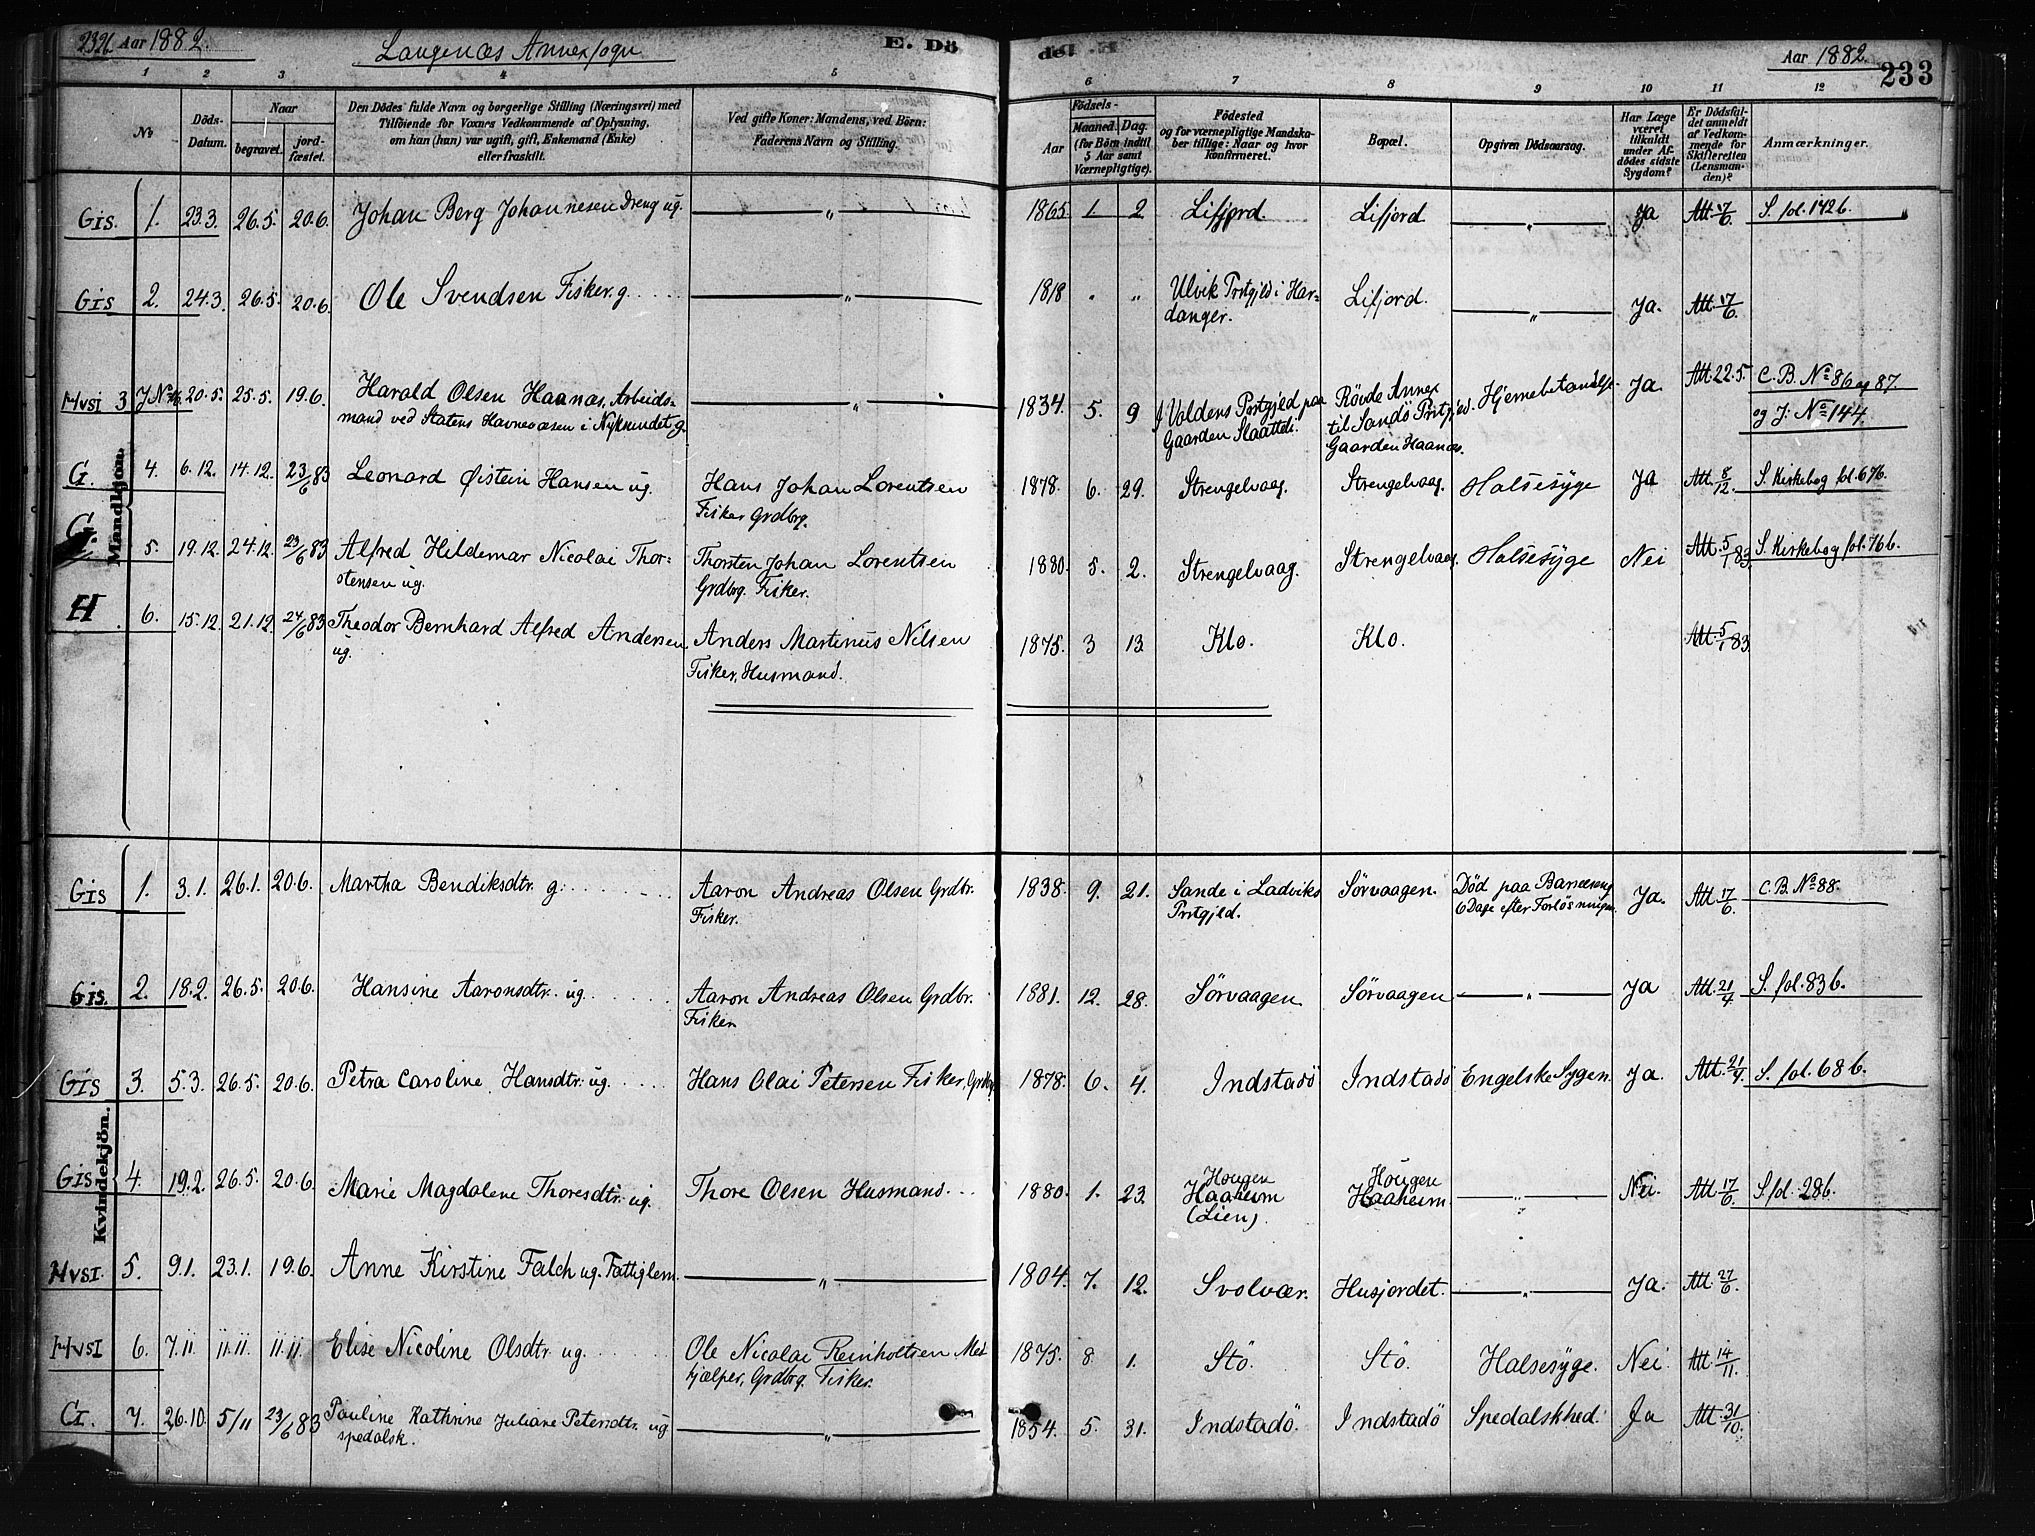 232 b Aar 1882. Langenæs Annexsogn E. Dö
de. Aar 1882. 233
1 2 3 4 5
6 7 8 9 10 11 12
No
Döds-Datum.
Naar
begravet.
jord-fæstet.
Den Dödes fulde Navn og borgerlige Stilling (Næringsvei) med
Tilföiende for Voxnes Vedkommende af Oplysning,
om han (hun) var ugift, gift, Enkemand (Enke)
eller fraskilt.
Ved gifte Koner: Mandens, ved Börn:
Faderens Navn og Stilling.
Födsels-
Aar
Maaned.
Dag.
(for Börn indtil
5 Aar samt
Værnepligtige).
Födested
og for værnepligtige Mandska-
ber tillige: Naar og hvor
konfirmeret.
Bopæl.
Opgiven Dödsaarsag.
Har Læge
været
tilkaldt
under Af-
dödes sidste
Sygdom?
Er Dödsfal-
det anmeldt
af Vedkom-
mende for
Skifteretten
(Lensman-
den)?
Anmærkninger.
Mandkjön.
Gis. 1. 23.3. 26.5. 20.6. Johan Berg Johannesen Dreng ug. — „ — 1865. 1. 2. Lifjord. Lifjord — „ — Ja Att. 17/6. S. fol. 142 b.
Gis 2. 24.3. 26.5. 20.6. Ole Svendsen Fisker. g. — „ — 1818 „ „ Ulvik Prstgjld i Har= Lifjord. — „ — Ja. Att. 17/6.
danger.
Hvsi 3 20.5. 25.5. 19.6. Harald Olsen Haanæs, Arbeids= — „ — 1834. 5. 9 I Voldens Prstgjeld paa Røvde Annex Hjernebetændelse Ja. Att. 22.5. C.B. No 86 og 87.
mand ved Statens Havnevæsen i Nyksundet g. Gaarden Slaatte. til Sandö Prstgjld. og J: No 144.
Gaarden Haanæs.
G. 4. 6.12. 14.12. 23/6 83 Leonard Øistein Hansen ug. Hans Johan Lorentsen 1878. 6. 29. Strengelvaag. Strengelvaag. Halsesyge Ja Att. 8/12. S. Kirkebog fol. 67 b.
Fisker Grdbrg.
G. 5. 19.12. 24.12. 23/6 83 Alfred Hildemar Nicolai Thor= Thorsten Johan Lorentsen 1880. 5. 2. Strengelvaag. Strengelvaag. Halsesyge Nei Att. 5/1 83. S. Kirkebog fol. 76 b.
stensen ug. Grdbrg. Fisker.
H 6. 15.12. 21.12. 24/6 83 Theodor Bernhard Alfred Andersen Anders Martinus Nilsen 1875. 3 13. Klo. Klo. Att. 5/1 83.
ug. Fisker, Husmand.
Kvindekjön.
Gis 1. 3.1. 26.1. 20.6. Martha Bendiksdtr. g. Aaron Andreas Olsen Grdbr. 1838. 9. 21. Sande i Ladviks Sørvaagen. Död paa Barselseng Ja. Att. 17/6. C.B. No 88.
Fisker. Prstgjeld. 6 Dage efter Forløsningen.
Gis. 2. 18.2. 26.5. 20.6. Hansine Aaronsdtr. ug. Aaron Andreas Olsen Grdbr. 1881. 12. 28. Sørvaagen Sørvaagen — „ — Ja Att. 21/4. S. fol. 83 b.
Fisker
Gis 3. 5.3. 26.5. 20.6. Petra Caroline Hansdtr. ug. Hans Olai Petersen Fisker, Grdbrg 1878. 6. 4. Indstadö Indstadö Engelske Sygen. Ja. Att. 21/4. S. fol. 68 b.
Gis 4. 19.2. 26.5. 20.6. Marie Magdalene Thoresdtr. ug. Thore Olsen Husmand. 1880. 1. 23. Hougen Haaheim (Lien). Hougen Haaheim. — „ — Nei. Att. 17/6. S. fol. 28 b.
Hvsi. 5. 9.1. 23.1. 19.6. Anne Kirstine Falch ug. Fattiglem. — „ — 1804. 7. 12. Svolvær. Husjordet. — „ — Ja. Att. 27/6.
Hvsi 6. 7.11. 11.11. 11.11. Elise Nicoline Olsdtr. ug. Ole Nicolai Reinholtsen Med 1875. 8. 1. Stö. Stö. Halsesyge. Nei. Att. 14/11.
hjælper, Grdbrg. Fisker.
G. 7. 26.10. 5/11 23/6 83 Pauline Kathrine Juliane Petersdtr. ug — „ — 1854. 5. 31. Indstadö. Indstadö Spedalskhed. Ja Att. 31/10.
spedalsk.